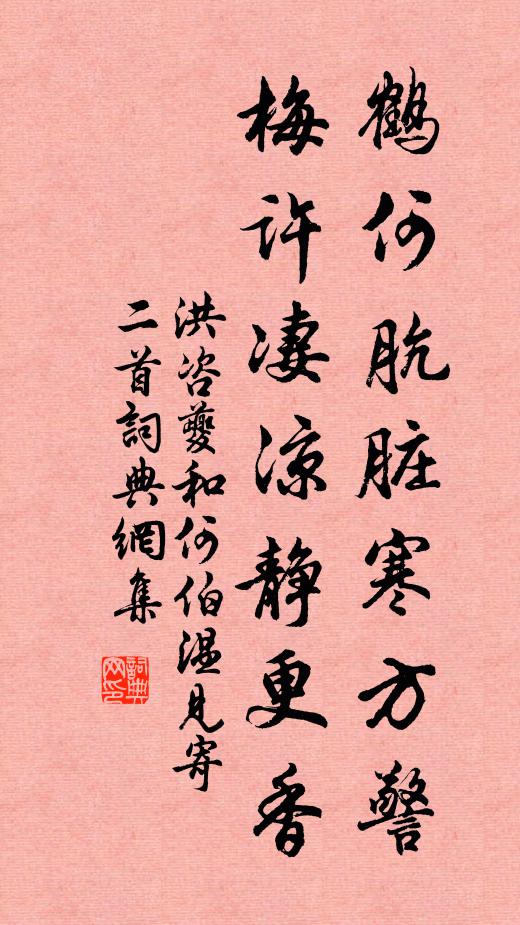 鹤何肮脏寒方警
梅许凄凉静更香
洪咨夔和何伯温见寄
二首詞典網集
詞典网印